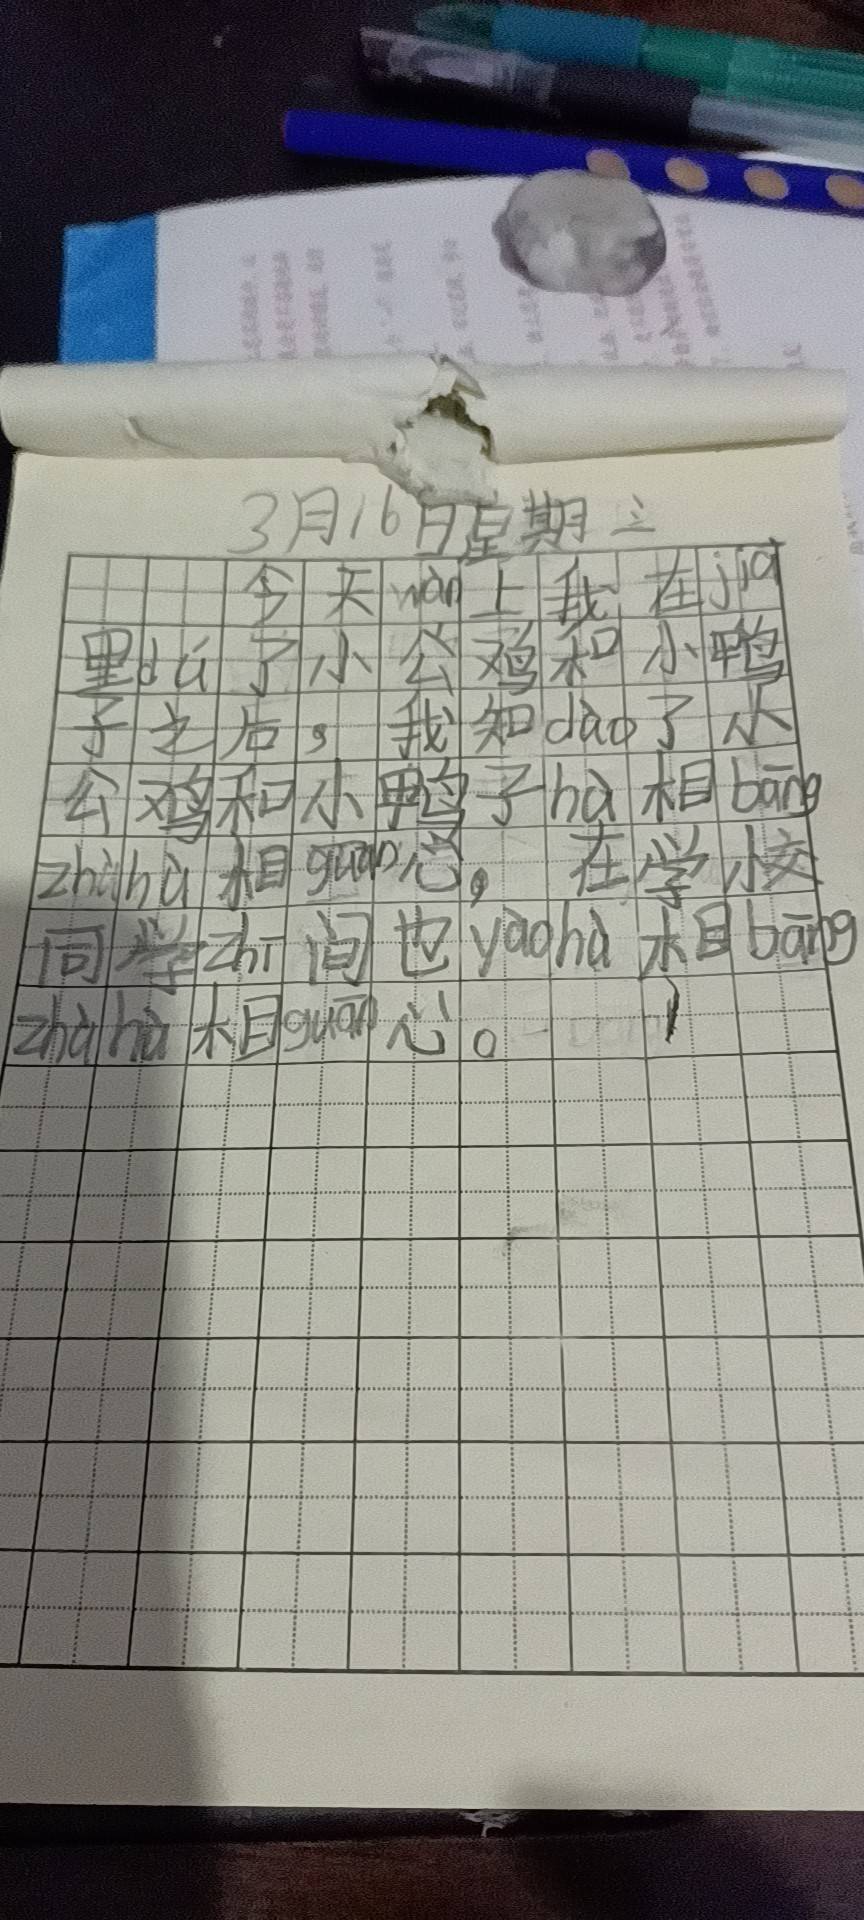 3月16日星期三
今天wǎn上我在jiā
里dú了小公鸡和小鸭
子之后，我知dào了小
公鸡和小鸭子hù相bāng
zhùhù相guān心。在学校
同学zhī间也yàohù相bāng
zhùhù相guān心。